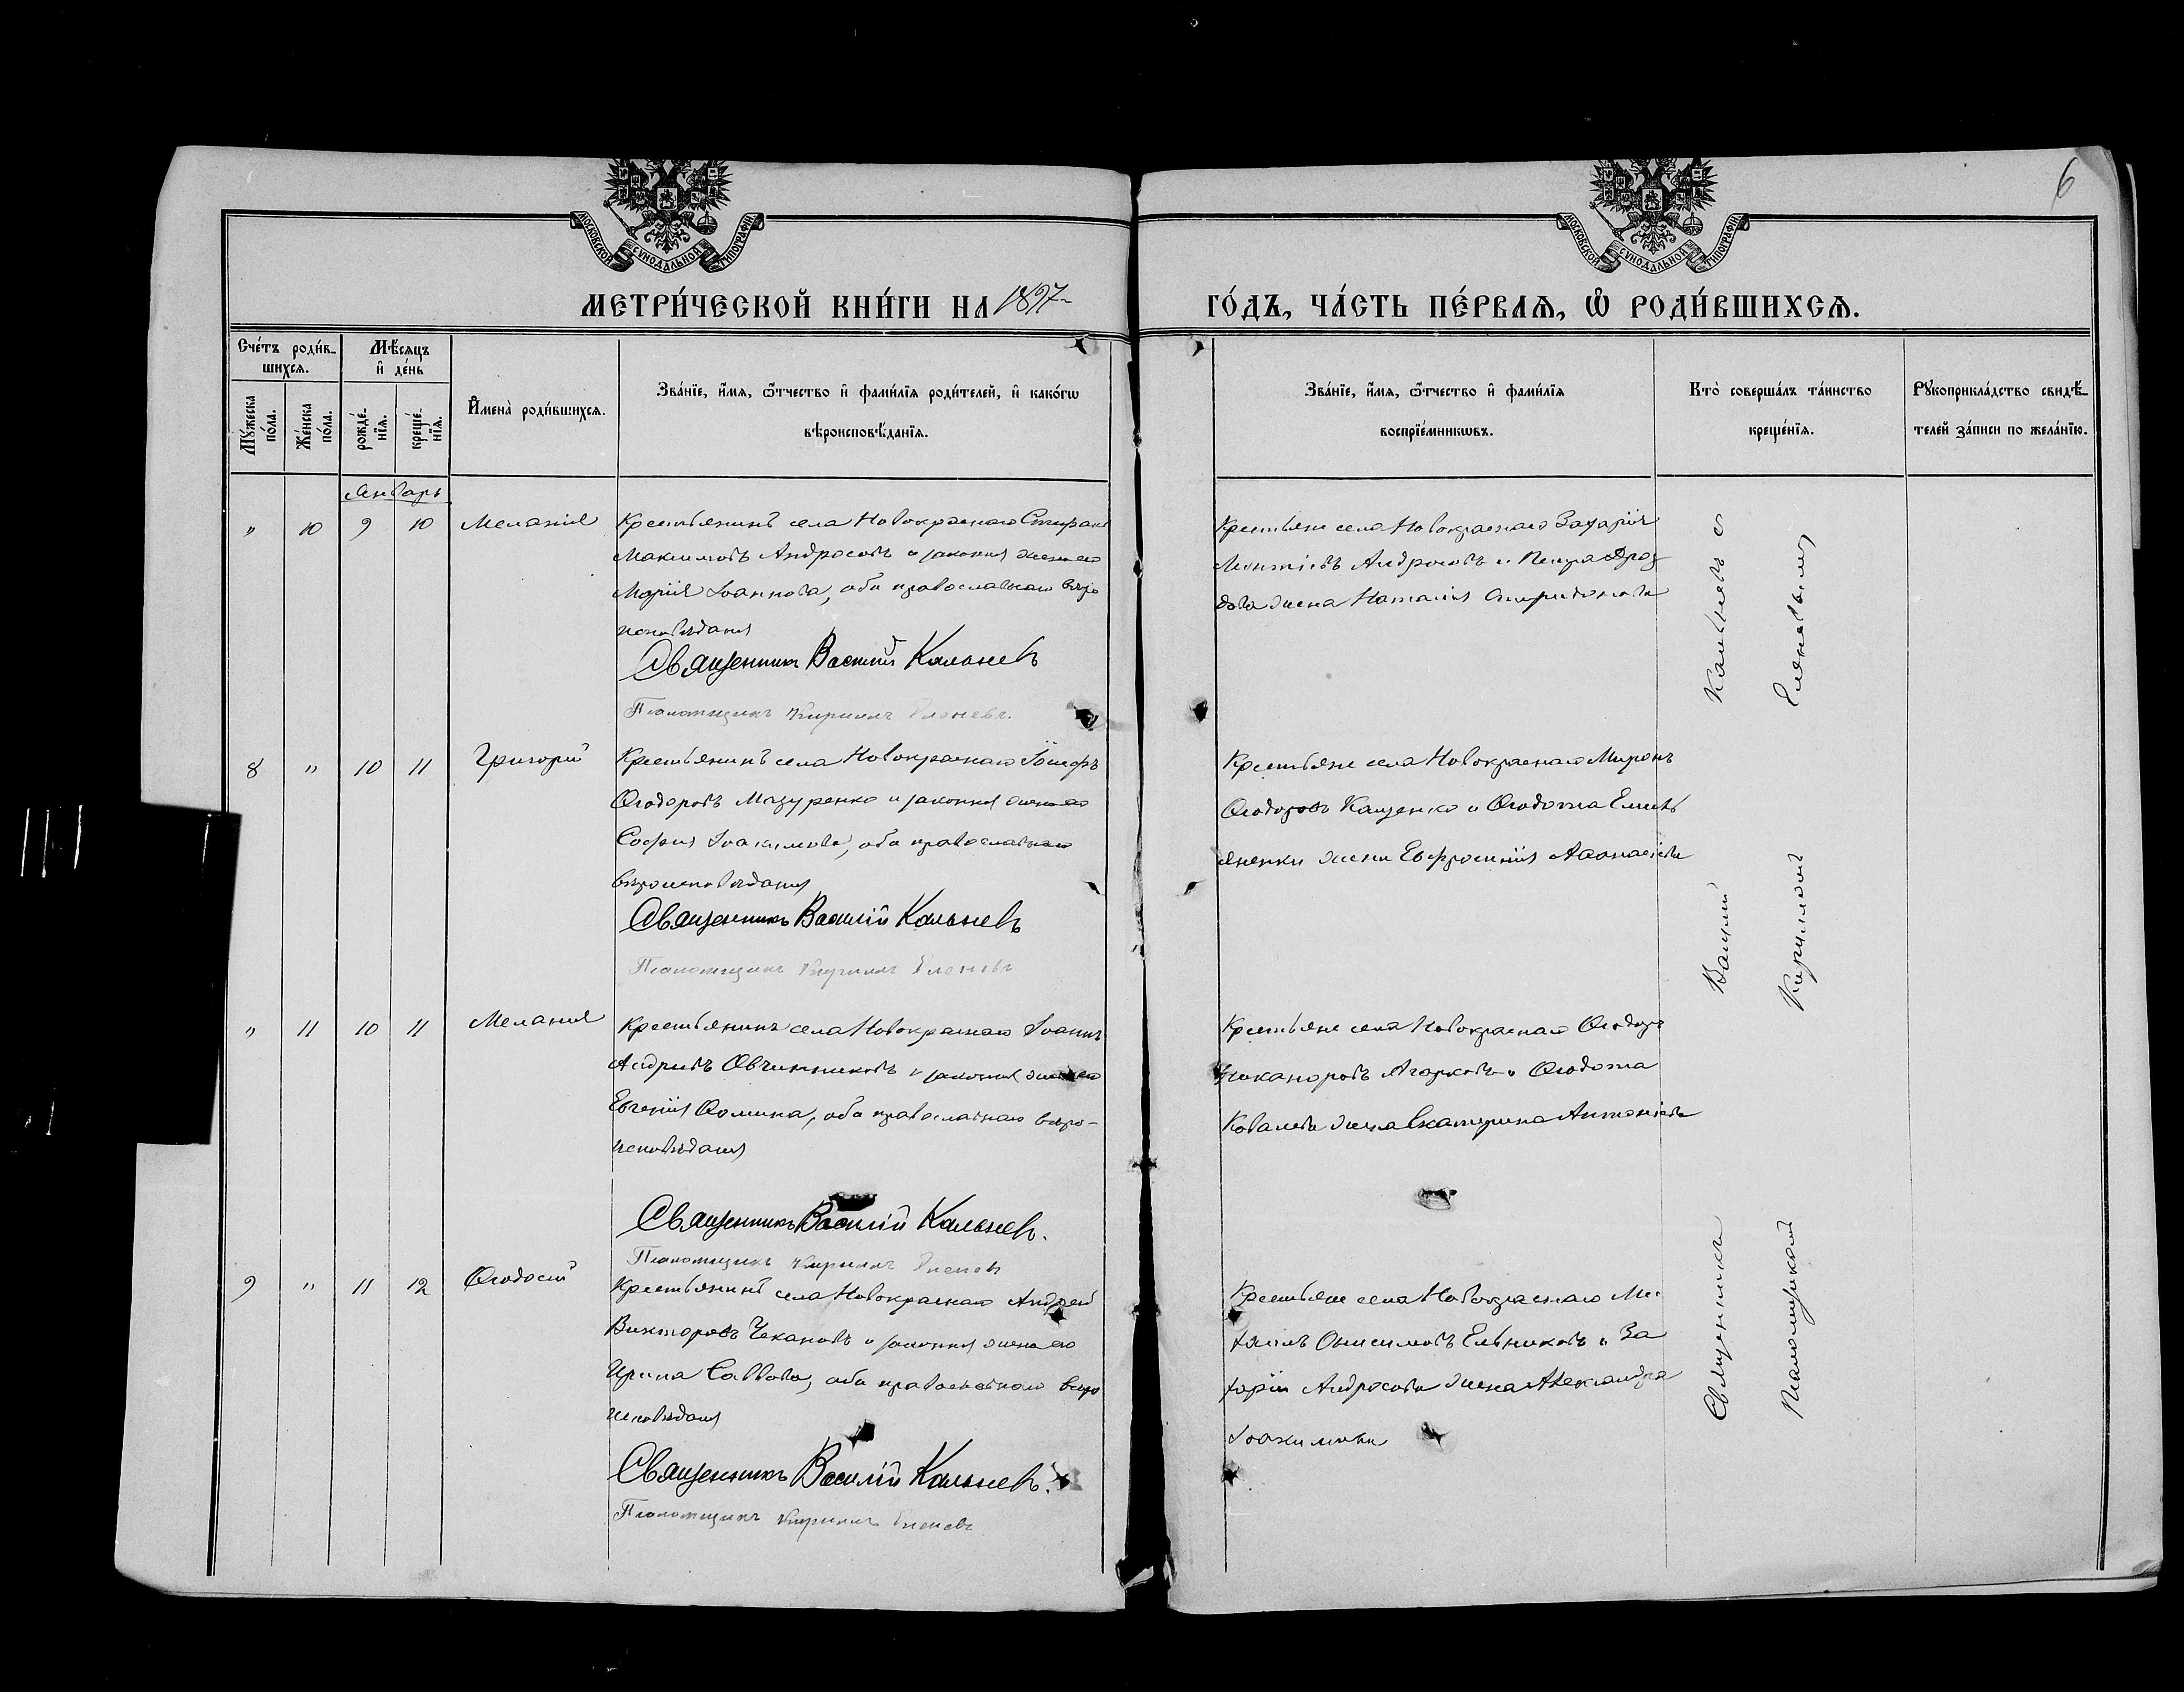 6
МОСКОВСКОЙ СѴНОДАЛЬНОЙ ТИПОГРАФІИ
МОСКОВСКОЙ СѴНОДАЛЬНОЙ ТИПОГРАФІИ
МЕТРИ́ЧЕСКОЙ КНИ́ГИ НА 1897
ГО́ДЪ, ЧА́СТЬ ПЕ́РВАѦ, Ѡ҆ РОДИ́ВШИХСѦ.
Сче́тъ роди́в-
шихсѧ.
Мꙋ́жеска по́ла.
Же́нска по́ла.
Мѣ́сѧцъ
и҆ де́нь
рожде́-
нїѧ.
креще́-
нїѧ.
И҆мена̀ роди́вшихсѧ.
Зва́нїе, и҆́мѧ, ѻ҆́тчество и҆ фами́лїѧ роди́телей, и҆ како́гѡ
вѣроисповѣ́данїѧ.
Зва́нїе, и҆́мѧ, ѻ҆́тчество и҆ фами́лїѧ
воспрїе́мникѡвъ.
Кто̀ соверша́лъ та́инство
креще́нїѧ.
Рꙋкоприкла́дство свидѣ́-
телей за́писи по жела́нїю.
Январь
" 10 9 10 Меланія
Крестьянинъ села Новокраснаго Стефанъ
Максимовъ Андросовъ и законная жена его
Марія Іоаннова, оба православнаго вѣро
исповѣданія
Священникъ Василій Кальневъ
Псаломщикъ Кириллъ Еленевъ.
Крестьяне села Новокраснаго Захарій
Андросовъ и Петра Дроз
дова жена Наталія Спиридонова
8 " 10 11 Григорій
Крестьянинъ села Новокраснаго Іосифъ
Ѳеодоровъ Мазуренко и законная жена его
Софія Іоакимова, оба православнаго
вѣроисповѣданія
Священникъ Василій Кальневъ
Псаломщикъ Кириллъ Еленевъ
Крестьяне села Новокраснаго Миронъ
Ѳеодоровъ Кащенко и Ѳеодота Емель
яненки жена Евфросинія Аѳанасіева
" 11 10 11 Меланія
Крестьянинъ села Новокраснаго Іоаннъ
Андреевъ Овчинниковъ и законная жена его
Евгенія Ѳомина, оба православнаго вѣро-
исповѣданія
Священникъ Василій Кальневъ.
Псаломщикъ Кириллъ Еленевъ
Крестьяне села Новокраснаго Ѳеодоръ
Никаноровъ Агарковъ и Ѳеодота
Ковалева жена Екатерина Антоніева
9 " 11 12 Ѳеодосій
Крестьянинъ села Новокраснаго Андрей
Викторовъ Чекановъ и законная жена его
Ирина Саввова, оба православнаго вѣро
исповѣданія
Священникъ Василій Кальневъ.
Псаломщикъ Кириллъ Еленевъ
Крестьяне села Новокраснаго Ми-
хаилъ Онисимовъ Ельниковъ и За
харія Андросова жена Александра
Іоакимова
Священникъ Василій Кальневъ с
Псаломщикомъ Кирилломъ Еленевымъ